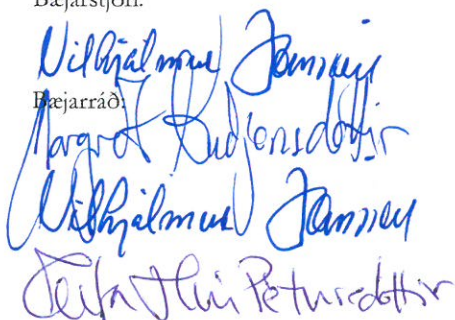 Bæjarstjóri:
Vilhjálmur Jónsson
Bæjarráð:
Margrét Guðjónsdóttir
Vilhjálmur Jónsson
Pétursdóttir